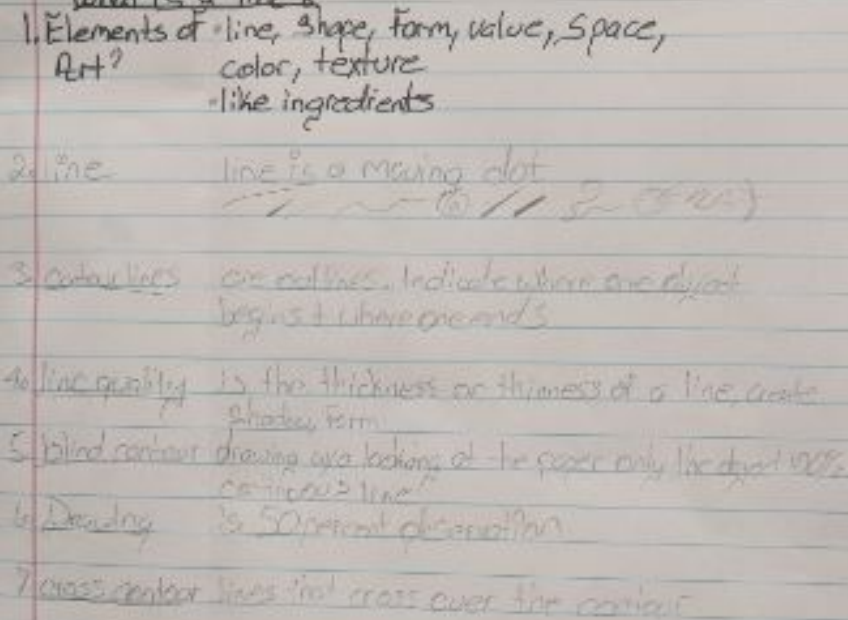 What is a line
1. Elements of Art? • line, shape, form, value, space,
color, texture
• like ingredients
2. line line is a moving dot
3. contour lines are outlines. Indicate where one object
begins + where one ends
4. line quality is the thickness or thinness of a line, create
shadow, form
5. blind contour drawing looking at the paper only the object 100%
line
6. Drawing is 50 percent observation
7. cross contour lines that cross over the contour